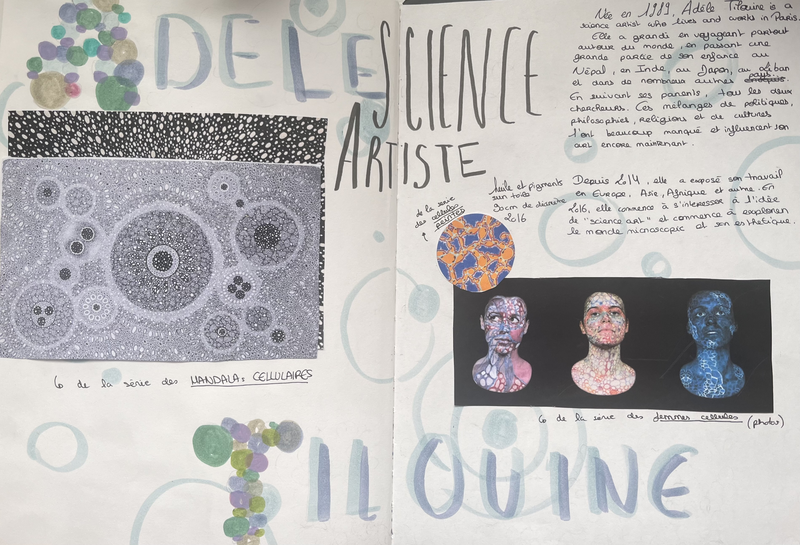 ADELE
SCIENCE
ARTISTE
Née en 1989, Adèle Tilouine is a
science artist who lives and works in Paris.
Elle a grandi en voyageant partout
autour du monde, en passant une
grande partie de son enfance au
Népal, en Inde, au Japon, au Liban
et dans de nombreux autres pays.
En suivant ses parents, tous les deux
chercheurs. Ces mélanges de politiques,
philosophies, religions et de cultures
l'ont beaucoup manqué et influencent son
art encore maintenant.
Depuis 2014, elle a exposé son travail
en Europe, Asie, Afrique et autre. En
2016, elle commence à s'interesser à l'idée
de "science art" et commence à explorer
le monde microscopic et son esthétique.
de la série
des cellules
PEINTES
huile et pigments
sur toile
30cm de diamètre
2016
de la série des MANDALAS CELLULAIRES
de la série des femmes cellules (photos)
TILOUINE